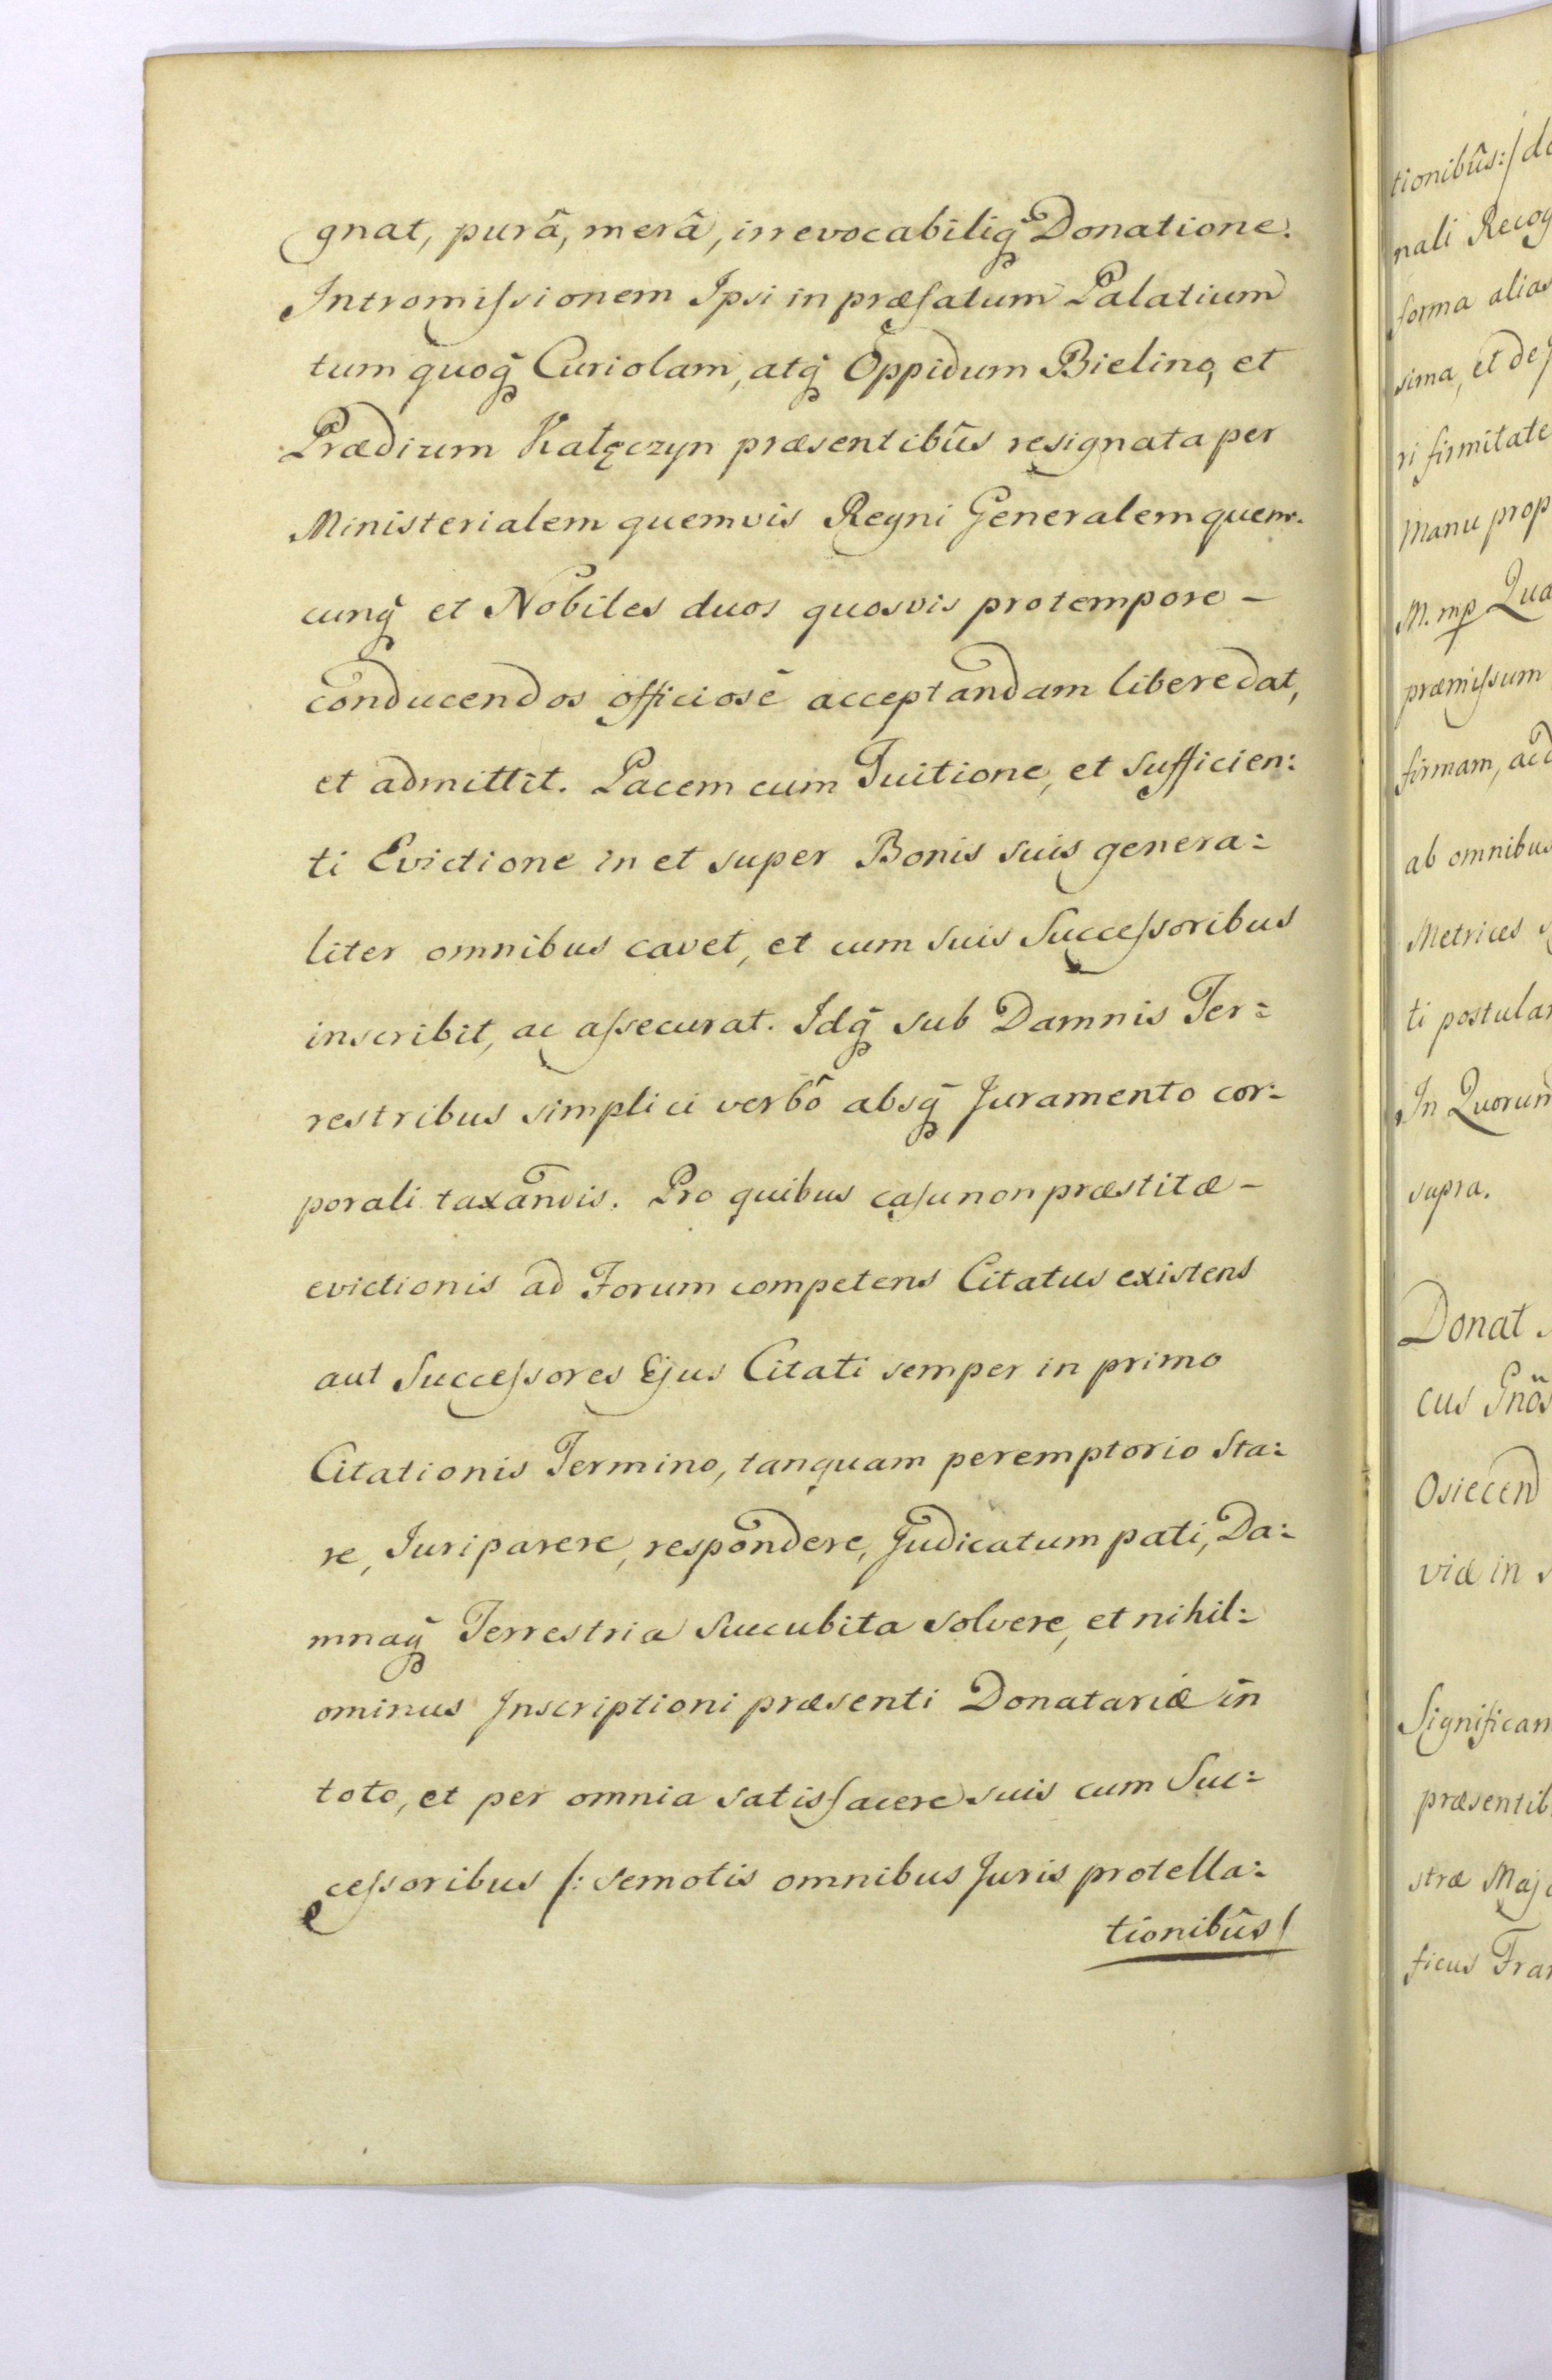 gnat, purâ, merâ, irrevocabiliq̃ Donatione.
Intromiſsionem Ipsi in præfatum Palatium
tum quoq̃ Curiolam, atq̃ Oppidum Bielino, et
Prædium Kałęczyn præsentibûs resignata per
Ministerialem quemvis Regni Generalem quem-
cunq̃ et Nobiles duos quosvis pro tempore -
conducendos officiosè acceptandam libere dat,
et admittit. Pacem cum Tuitione, et sufficien:
ti Evictione in et super Bonis suis genera:
liter omnibus cavet, et cum suis Succeſsoribus
inscribit, ac aſsecurat. Idq̃ sub Damnis Ter:
restribus simplici verbô absq̃ Juramento cor:
porali taxandis. Pro quibus casu non præstitæ -
evictionis ad Forum competens Citatus existens
aut Succeſsores Ejus Citati semper in primo
Citationis Termino, tanquam peremptorio Sta:
re, Juri parere, respondere, Judicatum pati, Da:
mnaq̃ Terrestria succubita solvere, et nihil:
ominus Inscriptioni præsenti Donatariæ in
toto, et per omnia satisfacere suis cum Suc:
ceſsoribus /: semotis omnibus Juris protella:
tionibûs/
tionibûs:/
nali Recog
forma alias
sima, et de
ri firmitate
Manu prop
M. mp Qua
præmiſsum
firmam, ac
ab omnibus
Metrices
ti postula
In Quorum
supra.
Donat
cus Gnõs
Osiecen
viæ in
Significam
præsentib
stræ Maj
ficus Fra